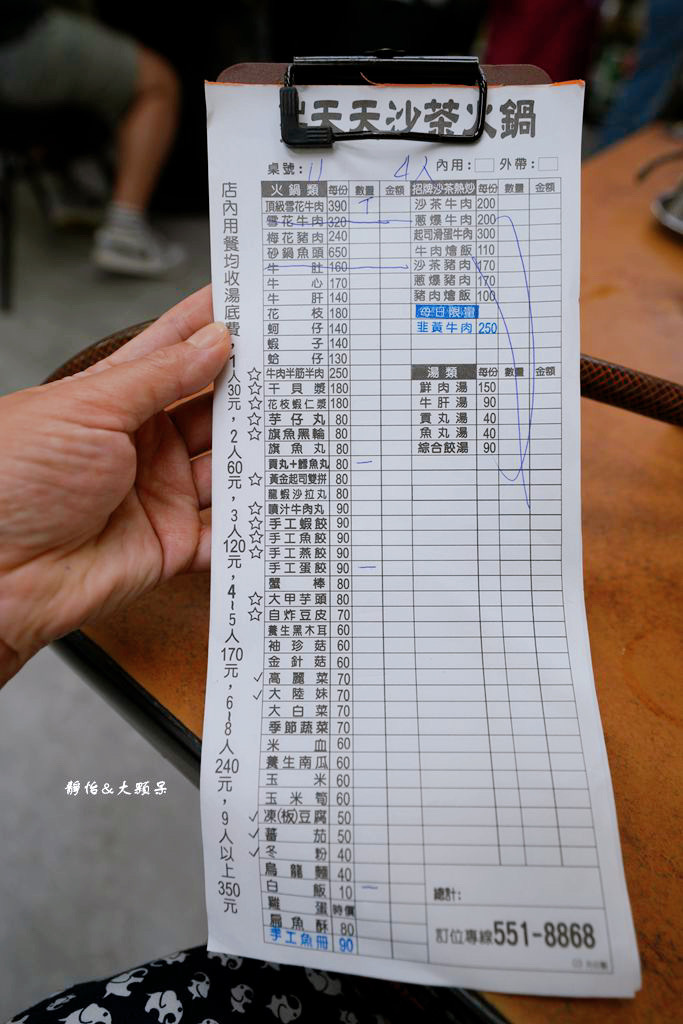 天天沙茶火鍋
桌號: 11 4人 內用: 外帶:
店內用餐均收湯底費，1人30元，2人60元，3人120元，4~5人170元，6~8人240元，9人以上350元
火鍋類 每份 數量 金額
頂級雪花牛肉 390
雪花牛肉 320
梅花豬肉 240
砂鍋魚頭 650
牛肚 160
牛心 170
牛肝 140
花枝 180
蚵仔 140
蝦子 140
蛤仔 130
☆ 牛肉半筋半肉 250
☆ 干貝漿 180
☆ 花枝蝦仁漿 180
☆ 芋仔丸 80
☆ 旗魚黑輪 80
旗魚丸 80
貢丸+鱈魚丸 80 一
☆ 黃金起司雙拼 80
龍蝦沙拉丸 80
☆ 噴汁牛肉丸 90
☆ 手工蝦餃 90
☆ 手工魚餃 90
☆ 手工燕餃 90
手工蛋餃 90 一
蟹棒 80
☆ 大甲芋頭 80
☆ 自炸豆皮 70
養生黑木耳 60
袖珍菇 60
金針菇 60
✓ 高麗菜 70
✓ 大陸妹 70
大白菜 70
季節蔬菜 70
米血 60
養生南瓜 60
玉米 60
玉米筍 60
✓ 凍(板)豆腐 50
✓ 蕃茄 50
✓ 冬粉 40
烏龍麵 40
白飯 10 一
雞蛋 時價
扁魚酥 80
手工魚冊 90
招牌沙茶熱炒 每份 數量 金額
沙茶牛肉 200
蔥爆牛肉 200
起司滑蛋牛肉 300
牛肉燴飯 110
沙茶豬肉 170
蔥爆豬肉 170
豬肉燴飯 100
每日限量
韭黃牛肉 250
湯類 每份 數量 金額
鮮肉湯 150
牛肝湯 90
貢丸湯 40
魚丸湯 40
綜合餃湯 90
總計:
訂位專線551-8868
靜怡&大顆呆